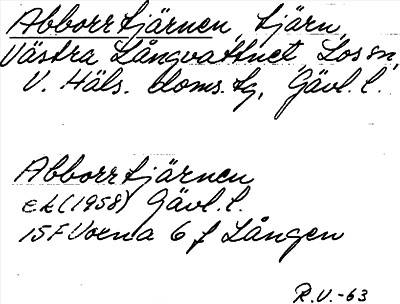 Abborrtjärnen, tjärn,
Västra Långvattnet, Los sn,
V. Häls. doms. tg, Gävl. l.
Abborrtjärnen
ek (1958) Gävl. l.
15F Voxna 6 f Lången
R.V.-63